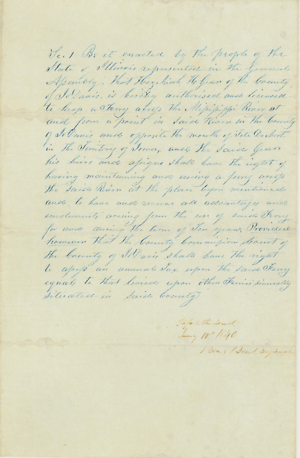 Sec. 1 Be it enacted by the people of the
State of Illinois represented in the General
Assembly. That Hezekiah H Gear of the County
of Jo Daviess, is hereby authorised and licensed
to keep a Ferry across the Mississippi River at
and from a point in said River in the County
of Jo Daviess and opposite the mouth of
in the Territory of Iowa, and the said Gear
his heirs and assigns shall have the right of
having maintaining and using a ferry across
the said River at the place before mentioned
and to have and receive all advantages and
emoluments arising from the use of said Ferry
for and during the term of Ten years, Provided
however that the County Commissioners Court of
the County of Jo Daviess shall have the right
to assess an annual Tax upon the said Ferry
equal to that levied upon other Ferries similarly
situated in said County